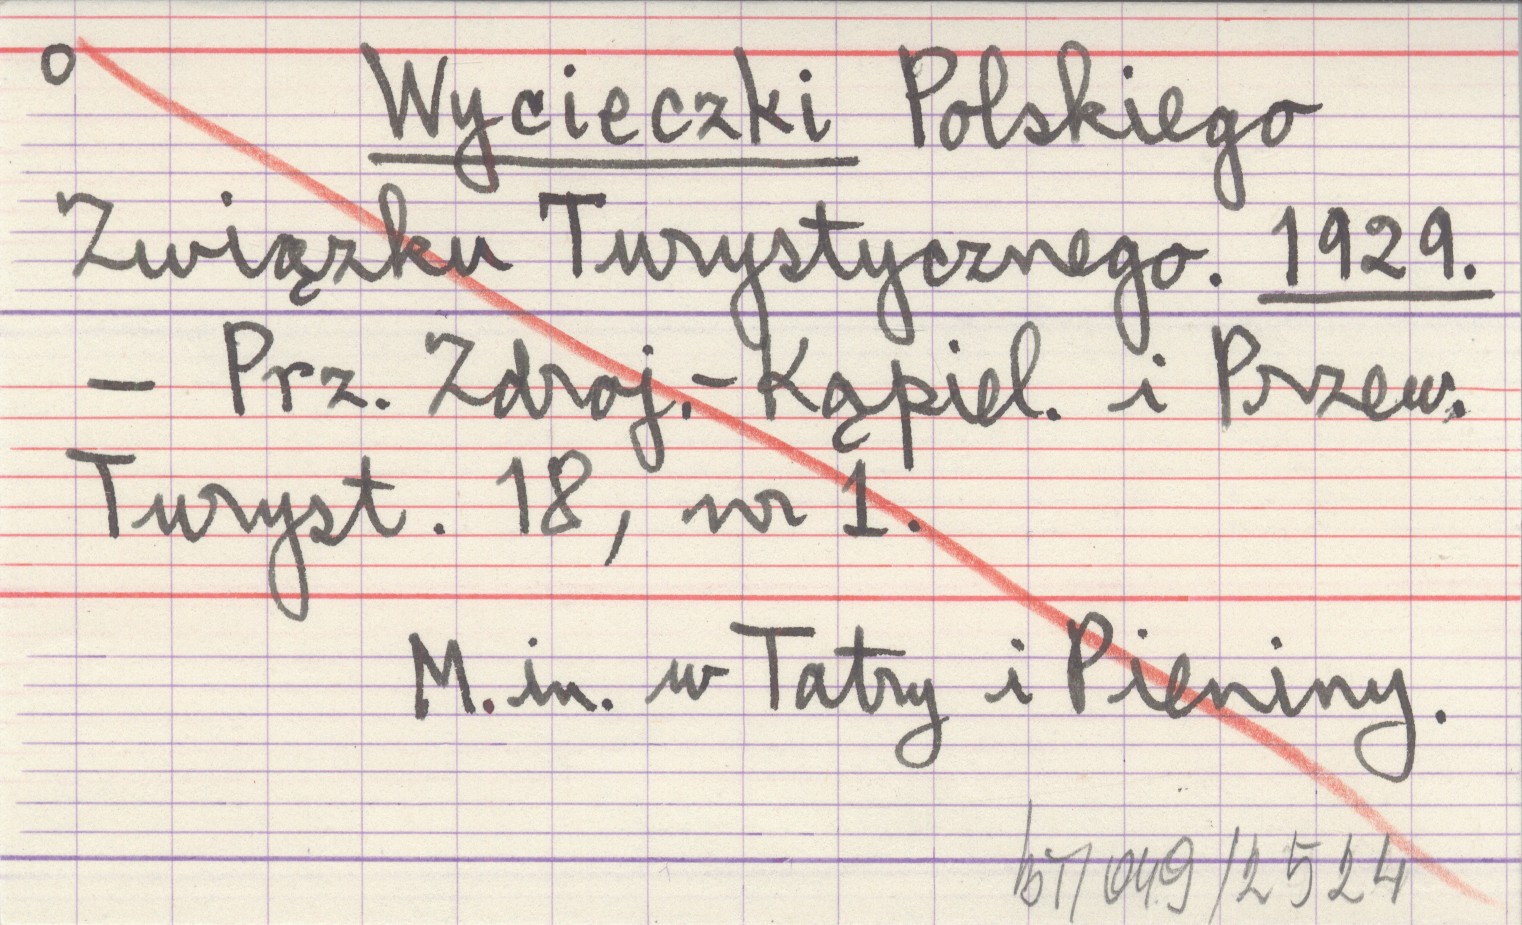 o Wycieczki Polskiego
Związku Turystycznego. 1929.
– Prz. Zdroj.-Kąpiel. i Przew.
Turyst. 18, nr 1.
M.in. w Tatry i Pieniny.
/049/2524